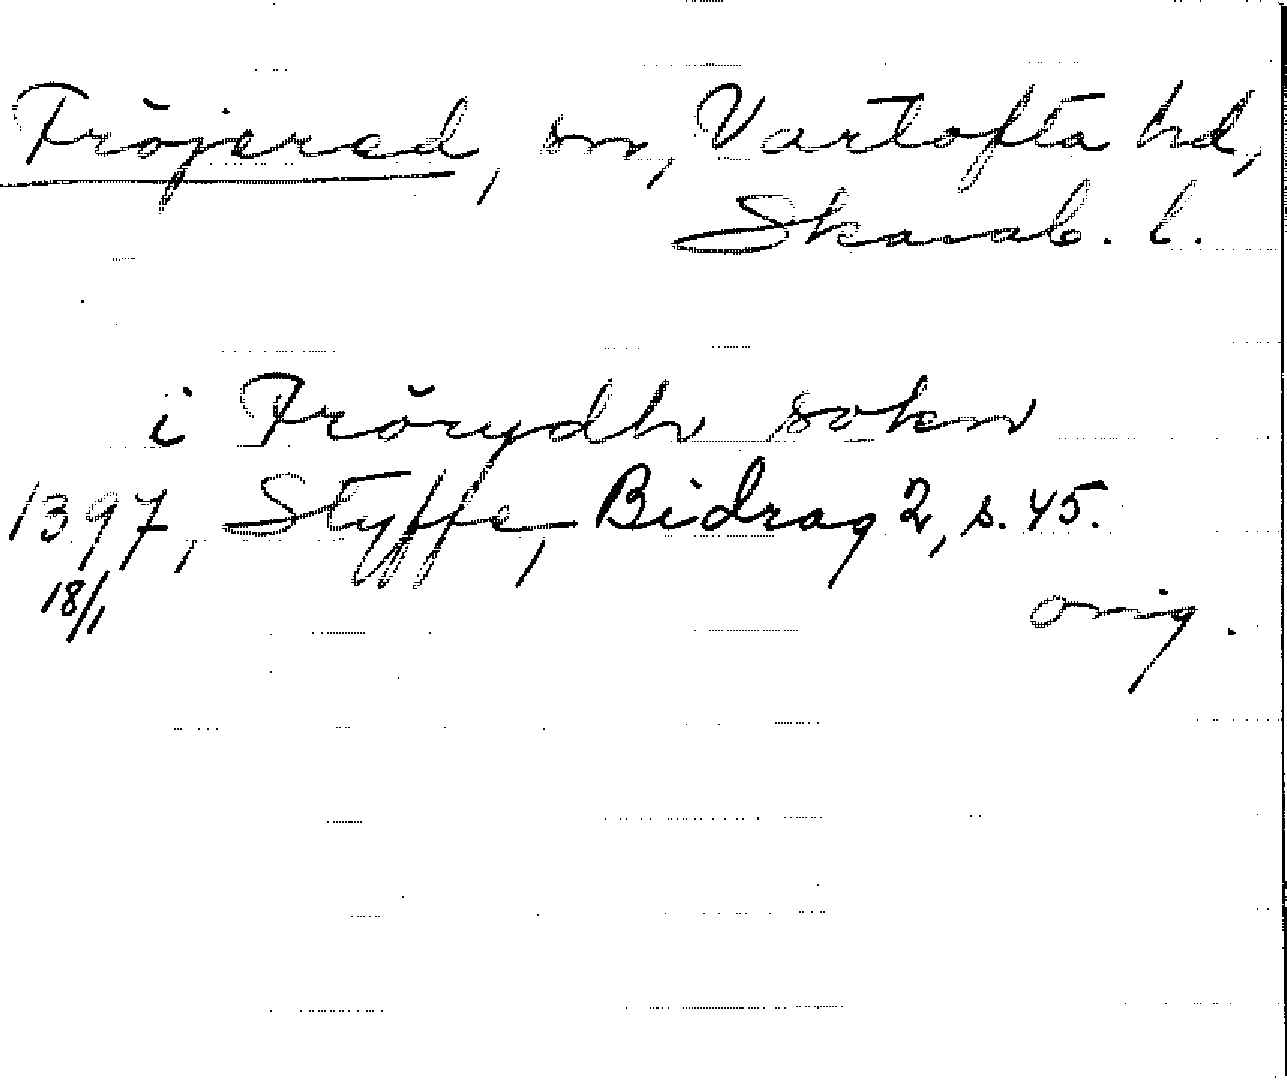 Fröjered, sn, Vartofta hd,
Skarab. l.
i Frörydh sokn
1397, Styffe, Bidrag 2, s. 45.
18/1 orig.